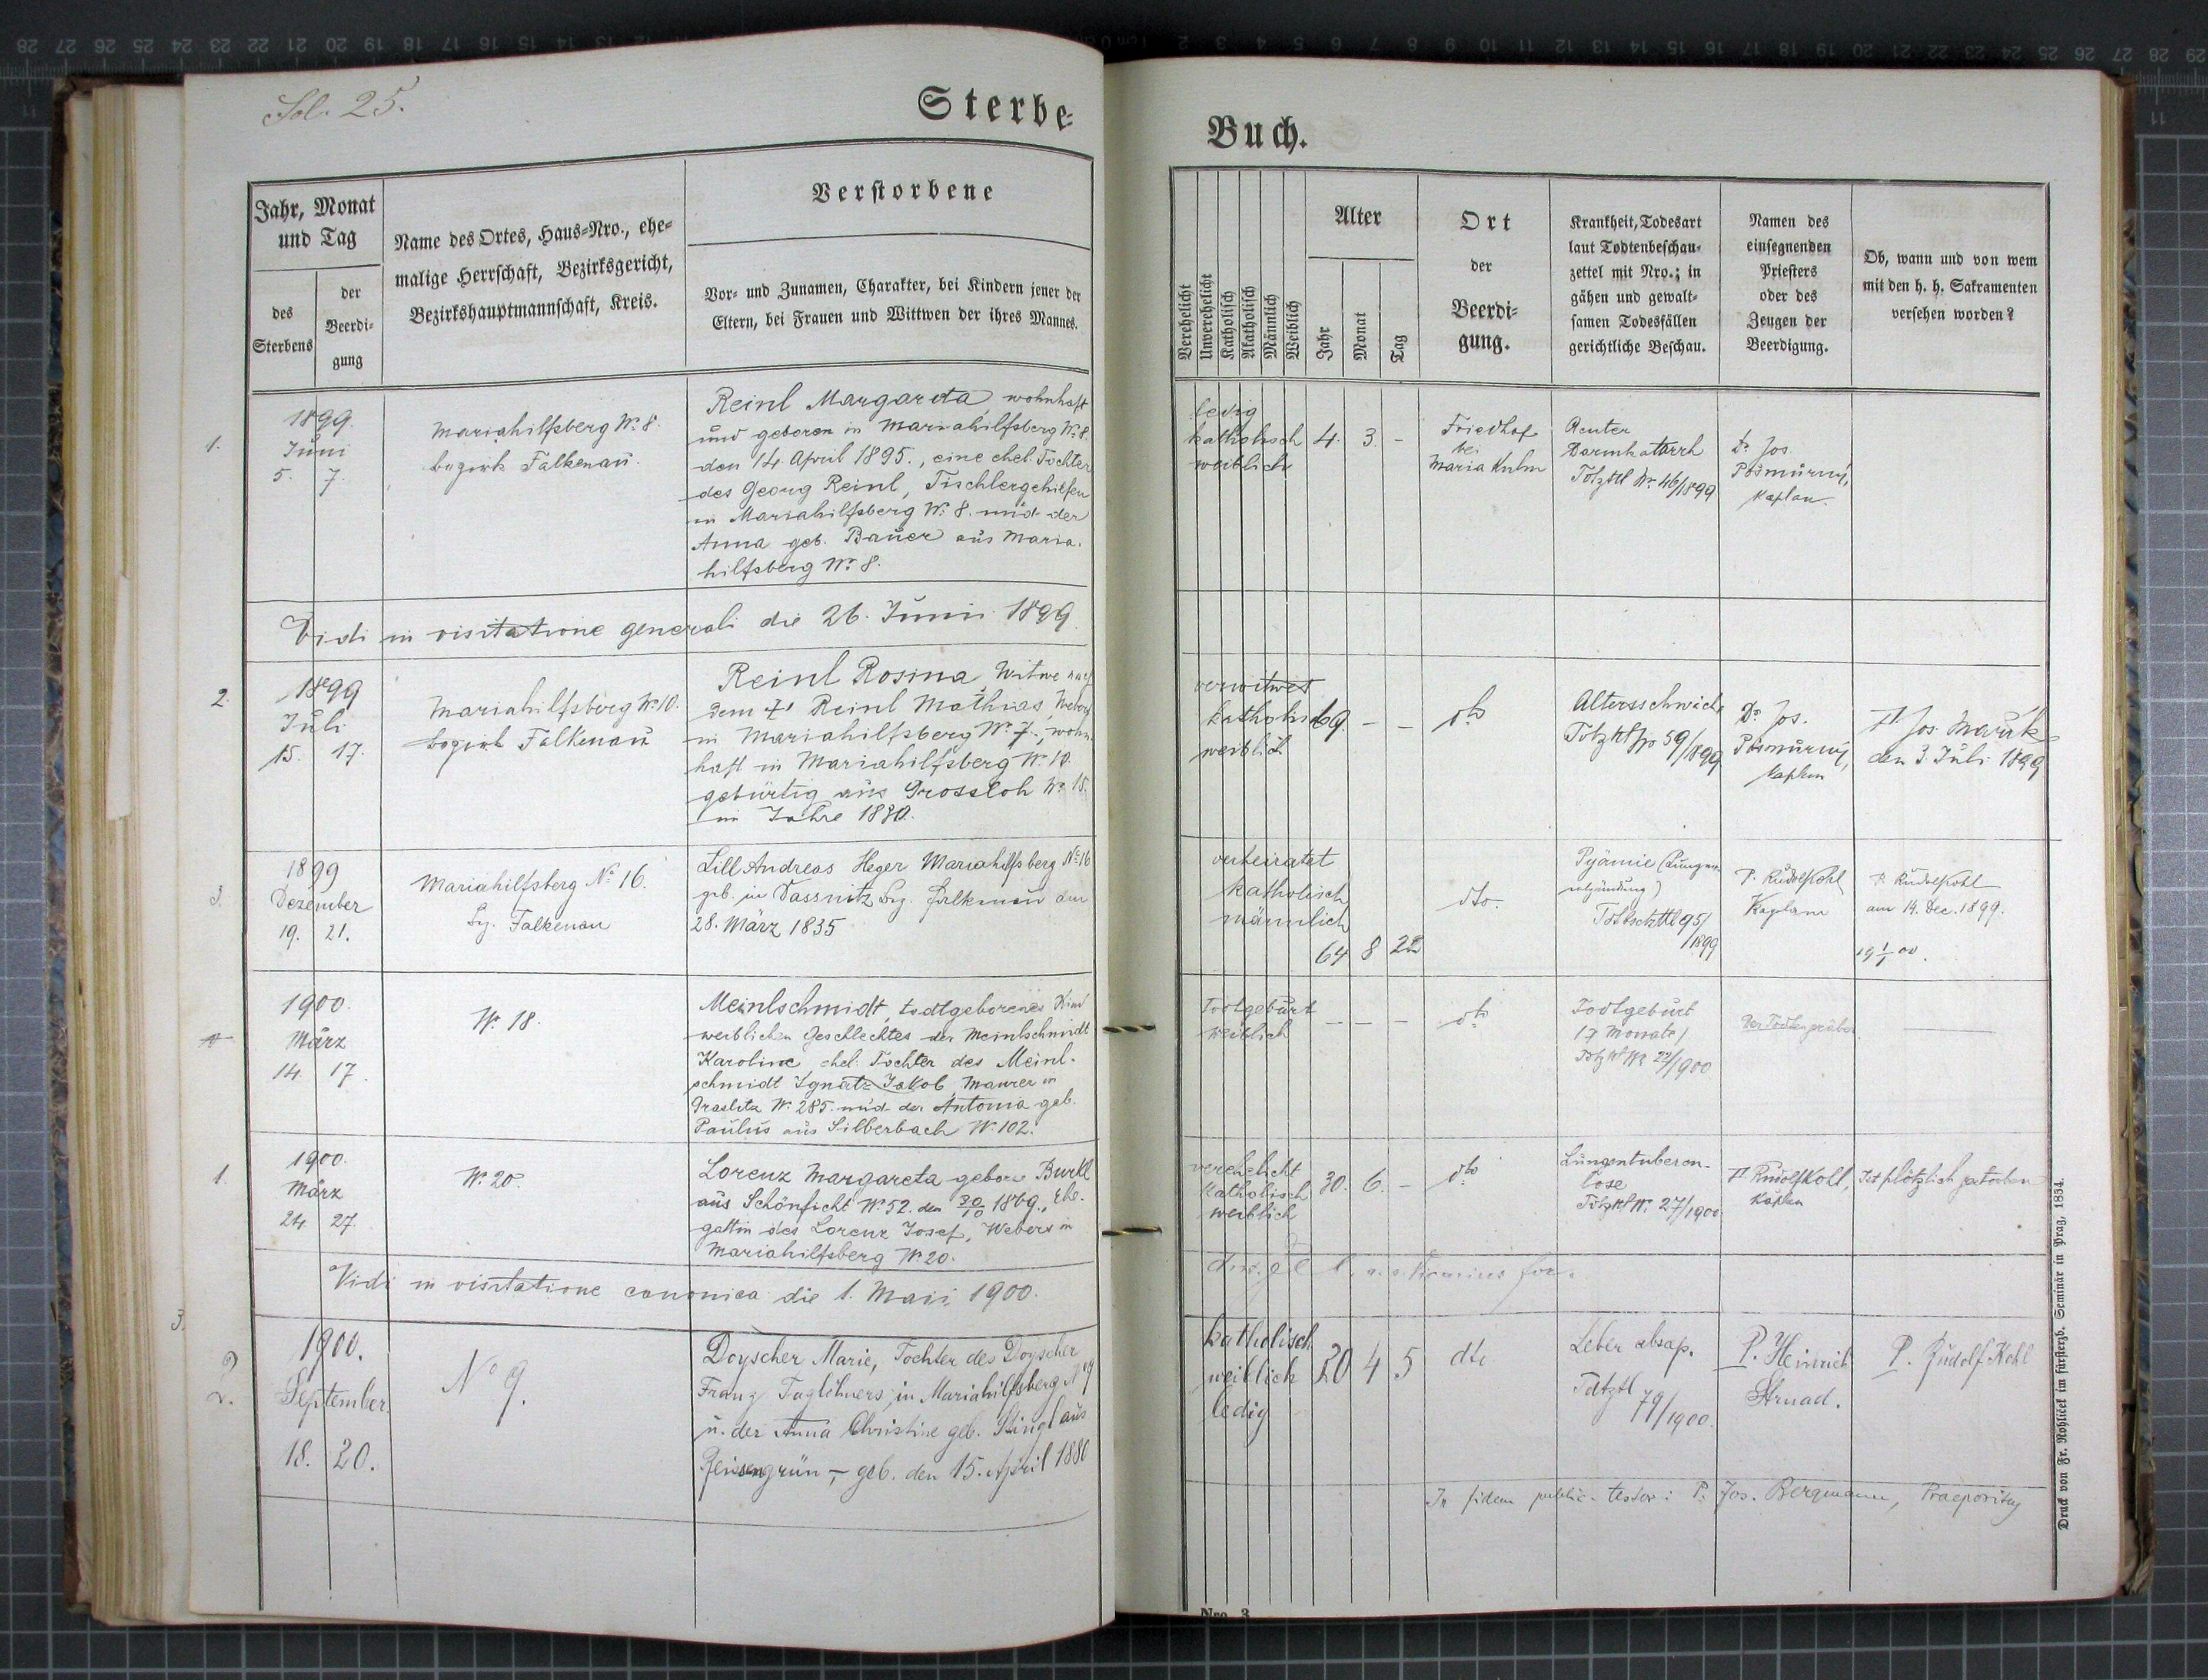 Fol. 25.
Sterbe-
Jahr, Monat
und Tag
des
Sterbens
der
Beerdi-
gung
Name des Ortes, Haus-Nro., ehe-
malige Herrschaft, Bezirksgericht,
Bezirkshauptmannschaft, Kreis.
Verstorbene
Vor- und Zunamen, Charakter, bei Kindern jener der
Eltern, bei Frauen und Wittwen der ihres Mannes.
1.
1899.
Juni
5. 7.
Mariahilfsberg No. 8.
bezirk Falkenau.
Reinl Margareta wohnhaft
und geboren in Mariahilfsberg No. 8.
den 14. April 1895., eine ehel. Tochter
des Georg Reinl, Tischlergehilfen
in Mariahilfsberg No. 8. und der
Anna geb. Bauer aus Maria-
hilfsberg No. 8.
Vidi in visitatione generali die 26. Junii 1899.
2.
1899
Juli
15. 17.
Mariahilfsberg No. 10.
bezirk Falkenau
Reinl Rosina, Witwe nach
dem † Reinl Mathias, Weber
in Mariahilfsberg No. 7., wohn-
haft in Mariahilfsberg No. 10.
gebürtig aus Grossloh No. 15.
im Jahre 1830.
3.
1899
Dezember
19. 21.
Mariahilfsberg No. 16.
Bez. Falkenau
Lill Andreas Heger Mariahilfsberg No. 16
geb. in Dassnitz Bez. Falkenau am
28. März 1835
1900.
März
14. 17.
No. 18.
Meinlschmidt, todtgeborenes Kind
weiblichen Geschlechtes der Meinlschmidt
Karoline ehel. Tochter des Meinl-
schmidt Ignatz Jakob, Maurer in
Graslitz No. 285. und der Antonia geb.
Paulus aus Silberbach No. 102.
1.
1900.
März
24. 27.
No. 20.
Lorenz Margareta geborn Burkl
aus Schönficht No. 52. den 30/10 1869., Ehe-
gattin des Lorenz Josef, Webers in
Mariahilfsberg No. 20.
Vidi in visitatione canonica die 1. Maii 1900.
3.
2.
1900.
September.
18. 20.
No 9.
Doyscher Marie, Tochter des Doyscher
Franz Taglöhners in Mariahilfsberg No 9
u. der Anna Christine geb. Stingl aus
Reissengrün, – geb. den 15. April 1880
Buch.
Verehelicht
Unverehelicht
Katholisch
Akatholisch
Männlich
Weiblich
Alter
Jahr
Monat
Tag
Ort
der
Beerdi-
gung.
Krankheit, Todesart
laut Todtenbeschau-
zettel mit Nro.; in
gähen und gewalt-
samen Todesfällen
gerichtliche Beschau.
Namen des
einsegnenden
Priesters
oder des
Zeugen der
Beerdigung.
Ob, wann und von wem
mit den h. h. Sakramenten
versehen worden?
ledig
katholisch 4. 3. –
weiblich
Friedhof
bei
Maria Kulm
Acuter
Darmkatarrh
Totzttl No. 46/1899
Dr. Jos.
Posmurný,
Kaplan.
verwitwet
katholisch 69. – –
weiblich
dto
Altersschwäche
Totzttl No 59/1899
Dr. Jos.
Posmurný,
Kaplan
P. Jos. Maruk
den 3. Juli 1899
verheiratet
katholisch
männlich
64 8 22
dto.
Pyämie (Lungen-
entzündung)
95/
1899
P. Rudolf Kohl
Kaplan
P. Rudolf Kohl
am 14. Dec. 1899.
Todtgeburt
weiblich
– – –
dto
Todtgeburt
(7 Monate)
Totzttl No. 22/1900
Der Todtengräber
verehelicht
katholisch 30. 6. –
weiblich
dto
Lungentubercu-
lose
Totzttl No. 27/1900
P. Rudolf Kohl,
Kaplan
Ist plötzlich gestorben
katholisch
weiblich 20 4 5
ledig
dto
Leber absap.
Totzttl
79/1900.
P. Heinrich
Strnad.
P. Rudolf Kohl
In fidem public. testor: P. Jos. Bergmann, Praepositus
Druck von Fr. Rohlíček im fürsterzb. Seminär in Prag, 1854.
Nro. 3